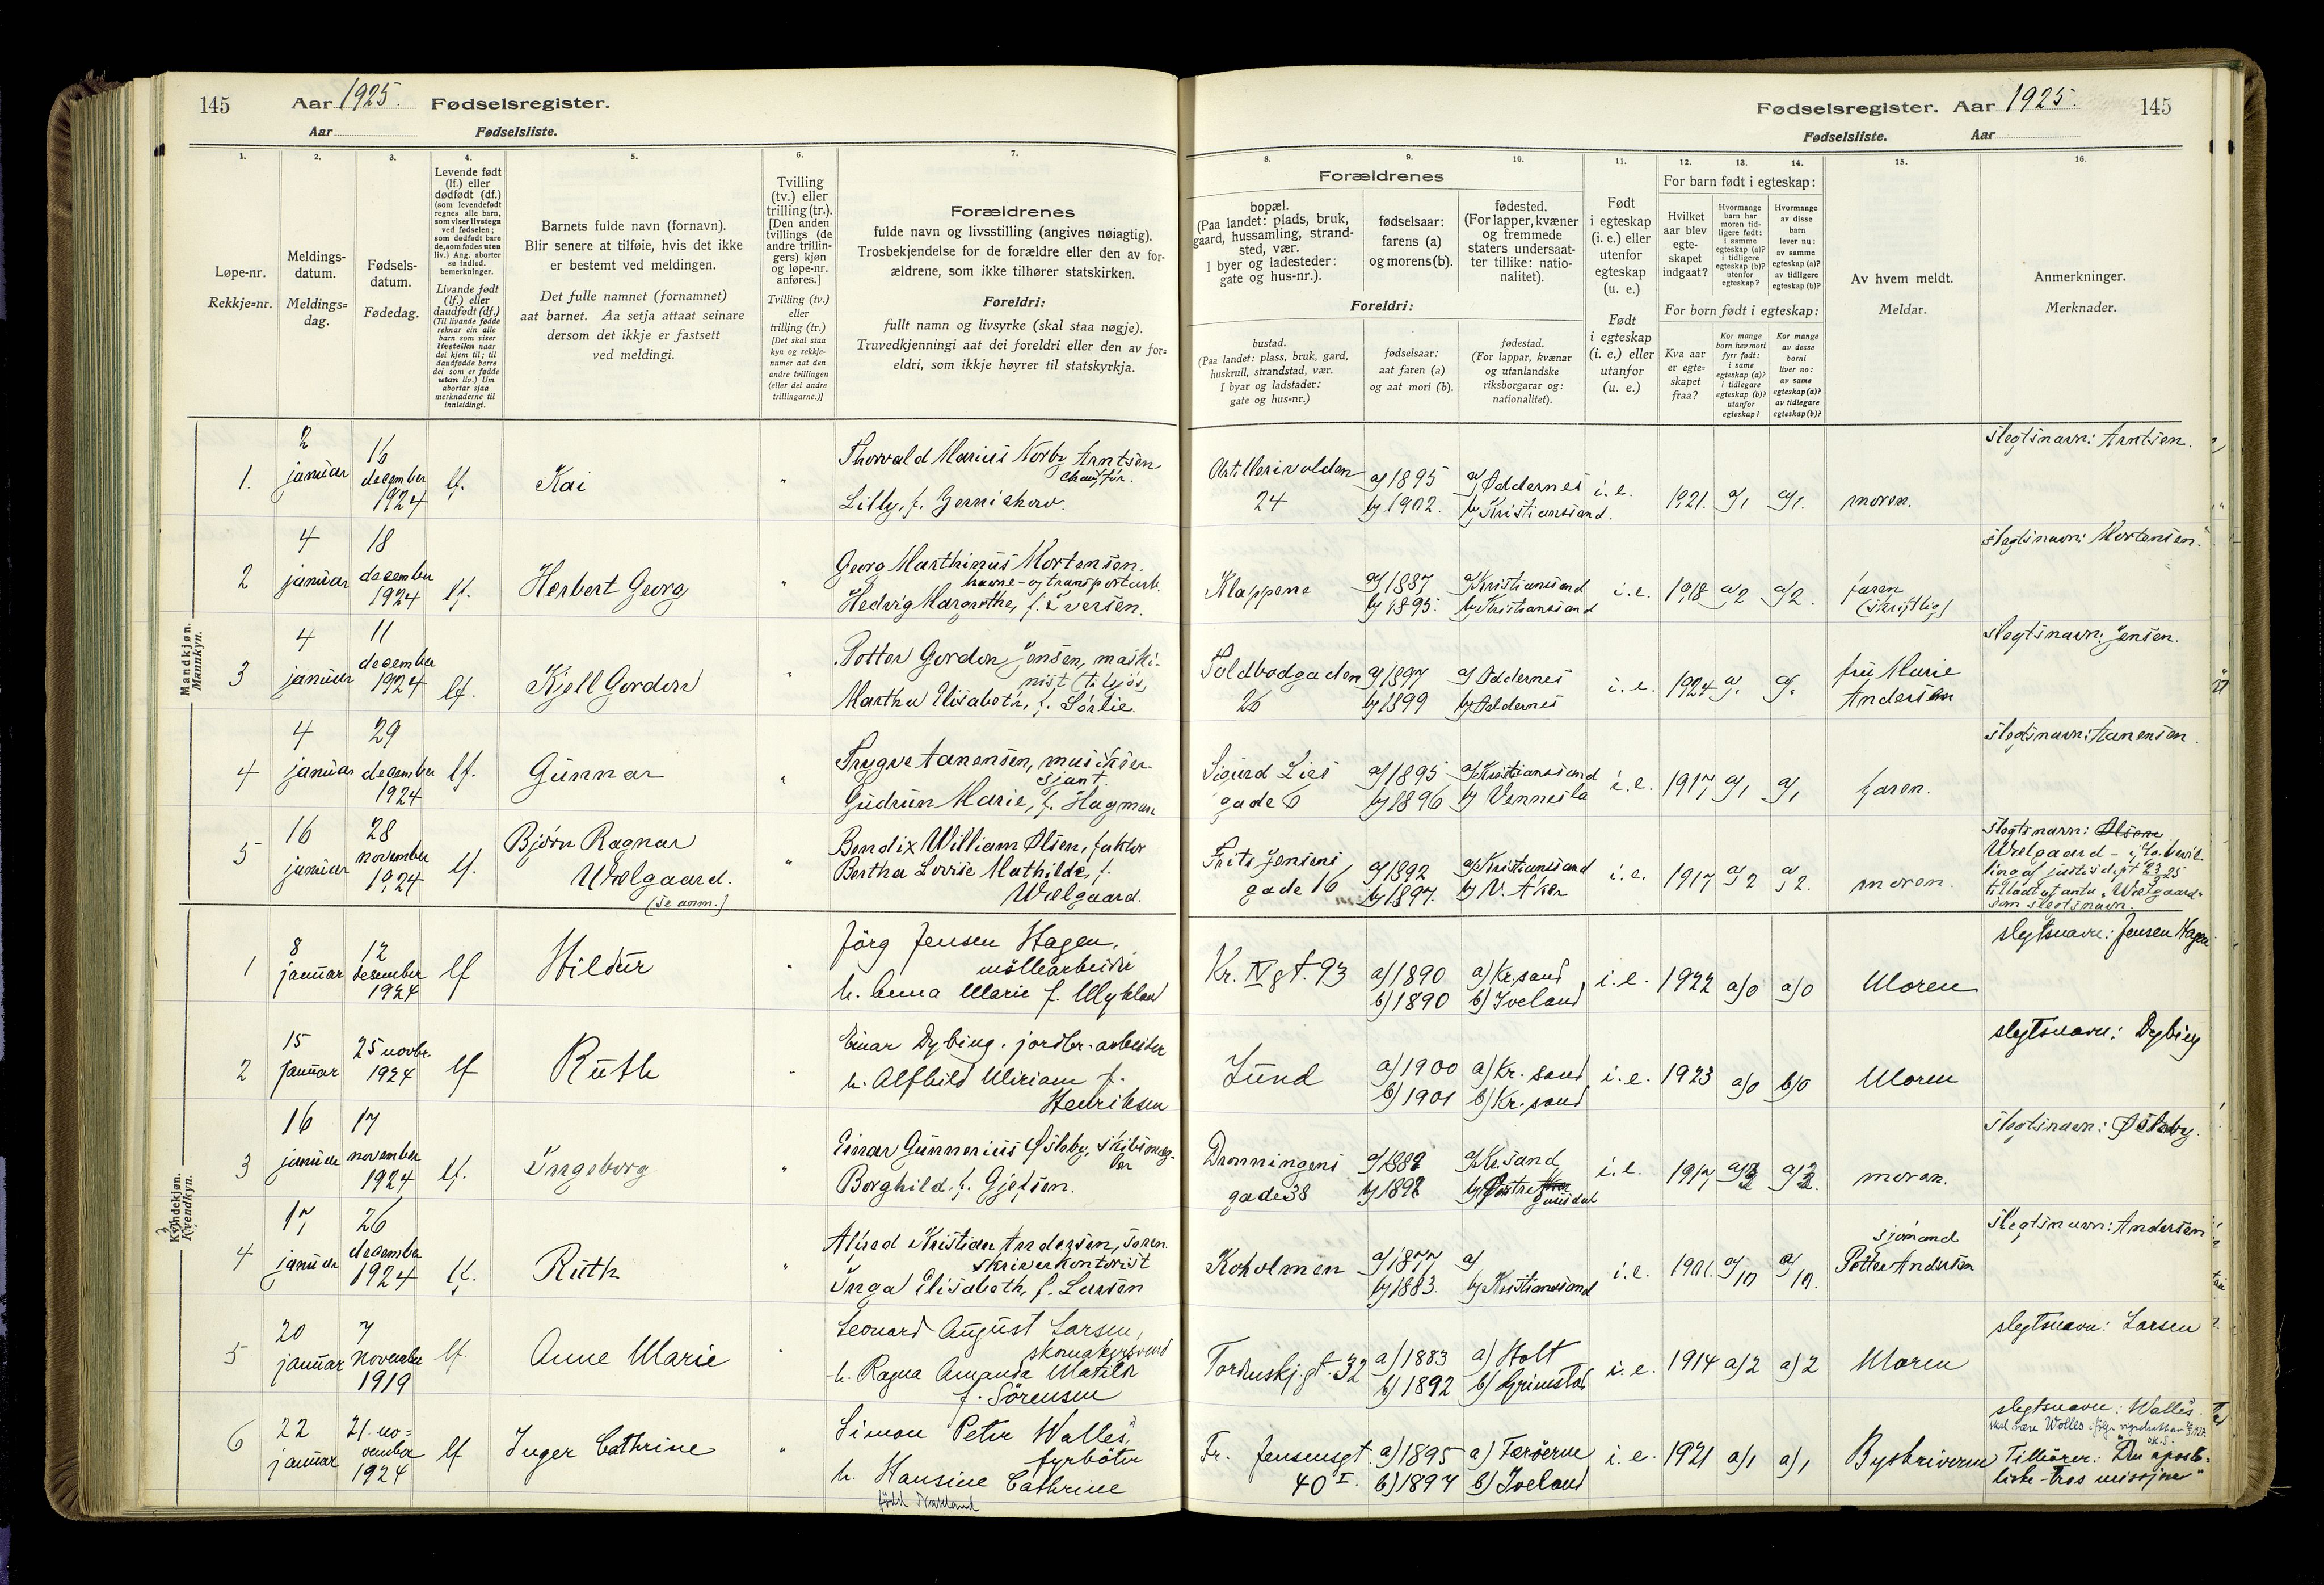 145 Aar 1925. Fødselsregister.
Aar Fødselsliste.
Fødselsregister. Aar 1925. 145
Fødselsliste. Aar
1. 2. 3. 4. 5. 6. 7.
Løpe-nr.
Rekkje=nr.
Meldings-
datum.
Meldings=
dag.
Fødsels-
datum.
Fødedag.
Levende født
(lf.) eller
dødfødt (df.)
(som levendefødt
regnes alle barn,
som viser livstegn
ved fødselen;
som dødfødt bare
de, som fødes uten
liv.) Ang. aborter
se indled.
bemerkninger.
Livande født
(lf.) eller
daudfødt (df.)
(Til livande fødde
reknar ein alle
barn som viser
lifsteikn naar
dei kjem til; til
daudfødde berre
dei som er fødde
utan liv.) Um
abortar sjaa
merknaderne til
innleidingi.
Barnets fulde navn (fornavn).
Blir senere at tilføie, hvis det ikke
er bestemt ved meldingen.
Det fulle namnet (fornamnet)
aat barnet. Aa setja attaat seinare
dersom det ikkje er fastsett
ved meldingi.
Tvilling
(tv.) eller
trilling (tr.).
[Den anden
tvillings (de
andre trillin-
gers) kjøn
og løpe-nr.
anføres.]
Tvilling (tv.)
eller
trilling (tr.)
[Det skal staa
kyn og rekkje-
numer aat den
andre tvillingen
(eller dei andre
trillingarne.)]
Forældrenes
fulde navn og livsstilling (angives nøiagtig).
Trosbekjendelse for de forældre eller den av for-
ældrene, som ikke tilhører statskirken.
Foreldri:
fullt namn og livsyrke (skal staa nøgje).
Truvedkjenningi aat dei foreldri eller den av for=
eldri, som ikkje høyrer til statskyrkja.
8. 9. 10. 11. 12. 13. 14. 15. 16.
Forældrenes
bopæl.
(Paa landet: plads, bruk,
gaard, hussamling, strand-
sted, vær.
I byer og ladesteder:
gate og hus-nr.).
fødselsaar:
farens (a)
og morens (b).
fødested.
(For lapper, kvæner
og fremmede
staters undersaat-
ter tillike: natio-
nalitet).
Foreldri:
bustad.
(Paa landet: plass, bruk, gard,
huskrull, strandstad, vær.
I byar og ladstader:
gate og hus=nr.)
fødselsaar:
aat faren (a)
og aat mori (b).
fødestad.
(For lappar, kvænar
og utanlandske
riksborgarar og:
nationalitet).
Født
i egteskap
(i. e.) eller
utenfor
egteskap
(u. e.)
Født
i egteskap
(i. e.) eller
utanfor
(u. e.)
For barn født i egteskap:
Hvilket
aar blev
egte-
skapet
indgaat?
Hvormange
barn har
moren tid-
ligere født:
i samme
egteskap (a)?
i tidligere
egteskap (b)?
utenfor
egteskap?
Hvormange
av disse
barn
lever nu:
av samme
egteskap (a)?
av tidligere
egteskap (b)?
For born født i egteskap:
Kva aar
er egte=
skapet
fraa?
Kor mange
born hev mori
fyrr født:
i same
egteskap (a)?
i tidlegare
egteskap (b)?
utanfor
egteskap?
Kor mange
av desse
borni
liver no:
av same
egteskap (a)?
av tidlegare
egteskap (b)?
Av hvem meldt.
Meldar.
Anmerkninger.
Merknader.
Mandkjøn.
Mannkyn.
1. 2 januar 16 december 1924 lf. Kai " Thorvald Marius Norby Arntsen chauffør. Lilly, f. Artillerivolden 24 a) 1895 b) 1902. a) Oddernes b) Kristiansand. i.e. 1921. a/1 a/1. moren. slegtsnavn: Arntsen.
2 4 januar 18 december 1924 lf. Herbert Georg " Georg Marthinus Mortensen. havne- og transportarb. Hedvig Margrethe, f. Iversen. Klappene a) 1887 b) 1895. a) Kristiansand b) Kristiansand i.e. 1918 a/2 a/2. faren (skriftlig) slegtsnavn: Mortensen.
3 4 januar 11 december 1924 lf. Kjell Gordon " Petter Gordon Jensen, maskinist (tilsjøs) Martha Elisabeth, f. Sørlie. Toldbodgaden 26 a) 1897 b) 1899 a) Oddernes b) Oddernes i.e. 1924 a/. a/. fru Marie Andersen slegtsnavn: Jensen.
4 4 januar 29 december 1924 lf. Gunnar " Trygve Aanensen, musiksersjant. Gudrun Marie, f. Hagman Sigurd Lies gade 6 a) 1895 b) 1896 a) Kristiansand b) Vennesla i.e. 1917 a/1 a/1 faren. slegtsnavn: Aanensen.
5 16 januar 28 november 1924 lf. Bjørn Ragnar Wælgaard. (se anm.) " Bendix William Olsen, faktor Bertha Lovise Mathilde, f. Wælgaard. Frits Jensens gade 16 a) 1892 b) 1897. a) Kristiansand b) V. Aker i.e. 1917 a/2 a/2. moren. slegtsnavn: Olsen Wælgaard - ifø. bevilling af justisdept 2/3 25 tilladt at anta "Wælgaard" som slegtsnavn.
Kvindekjøn.
Kvendkyn.
1 8 januar 12 desember 1924 lf Hildur " Jörg Jensen Hagen, möllearbeider h. Anna Marie f. Mykland Kr. IV gt. 93 a) 1890 b) 1890 a) Kr.sand b) Iveland i.e. 1922 a/0 a/0 Moren slegtsnavn: Jensen Hagen
2 15 januar 25 novbr. 1924 lf Ruth " Einar Dybing. jordbr.-arbeider h. Alfhild Miriam f. Henriksen Lund a) 1900 b) 1901 a) Kr. sand b) Kr. sand i.e. 1923 a/0 b/0 Moren slegtsnavn: Dybing
3 16 januar 17 november 1924 lf. Ingeborg " Einar Gunnerius Øsleby, skibsmægler Borghild. f. Gjelsen. Dronningens gade 38 a) Kr.sand b) Østre Gausdal i.e. 1917 moren. slegtsnavn: Øsleby.
4 17, januar 26 december 1924 lf. Ruth " Alfred Kristian Andersen, sorenskriverkontorist Inga Elisabeth, f. Larsen Kokolmen a) 1877 b) 1883. a) b) Kristiansand i.e. 1901. a/10 a/10. sjømand Petter Andersen slegtsnavn: Andersen
5 20 januar 7 november 1919 lf Anne Marie " Leonard August Larsen, skomakersvend h. Ragna Amanda Matilde f. Sörensen Tordenskj. gt. 32 a) 1883 b) 1892 a) Holt b) Grimstad i.e. 1914 a/2 a/2 Moren slegtsnavn: Larsen
6 22 januar 21. november 1924 lf Inger Cathrine " Simon Peter Walles, fyrböter h. Hansine Cathrine född Fr. Jensensgt. 40 I. a) 1895 b) 1897 a) Færöerne b) Iveland i.e. 1921 a/1 a/1 Byskriveren slegtsnavn: Walles. skal være Wolles Tilhører: "Den apostoliske-Tros misjon"